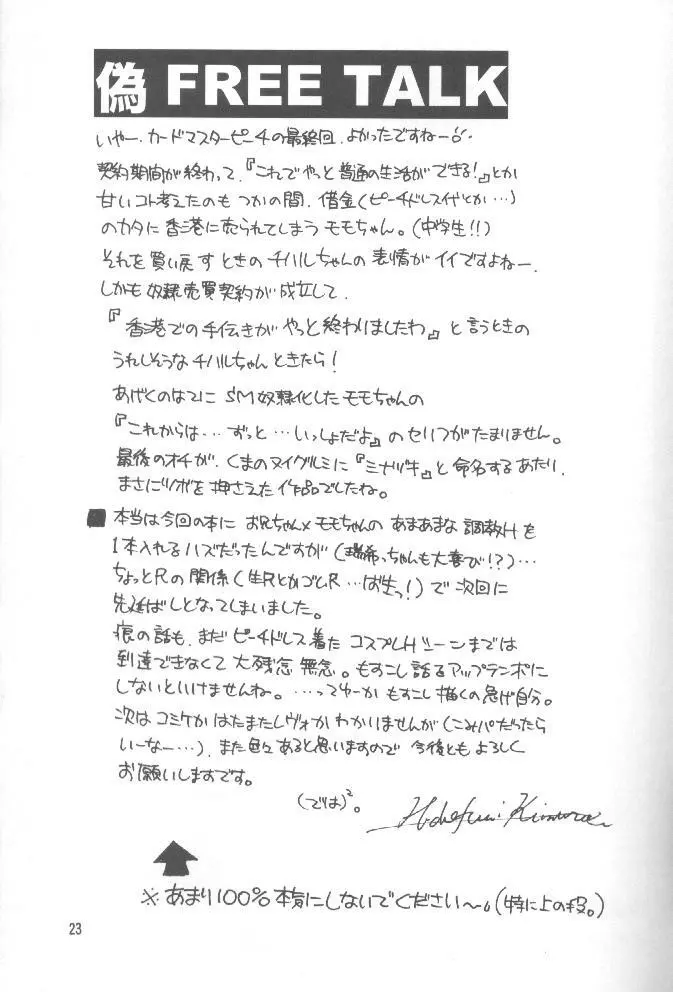 偽 FREE TALK
いやー、カードマスターピーチの最終回、よかったですねー。
契約期間が終わって、『これでやっと普通の生活ができる!』とか
甘いコト考えたのもつかの間、借金(ピーチドレス代とか…)
のカタに香港に売られてしまうモモちゃん。(中学生!!)
それを買い戻すときのチハルちゃんの表情がイイですよねー、
しかも奴隷売買契約が成立して、
『香港での手伝きがやっと終わりましたわ』と言うときの
うれしそうなチハルちゃんときたら!
あげくのはてにSM奴隷化したモモちゃんの
『これからは…ずっと…いっしょだよ』のセリフがたまりません。
最後のオチが、くまのヌイグルミに『ミナヅキ』と命名するあたり、
まさにツボを押さえた作品でしたね。
■本当は今回の本にお兄ちゃん×モモちゃんのあまあまな調教Hを
1本入れるハズだったんですが(瑞希っちゃんも大喜び!?)…
ちょっとRの関係(生RとかゴムR…ば生っ!)で次回に
先延ばしとなってしまいました。
痕の話も、まだピーチドレス着たコスプレHシーンまでは
到達できなくて大残念無念。もすこし話をアップテンポに
しないといけませんね。…ってゆーかもすこし描くの急げ自分。
次はコミケかはたまたレヴォかわかりませんが(こみパだったら
いーなー…)、また色々あると思いますので今後ともよろしく
お願いしますです。
(では)²。
Hidefumi Kimura
※あまり100%本気にしないでください〜。(特に上の段。)
23